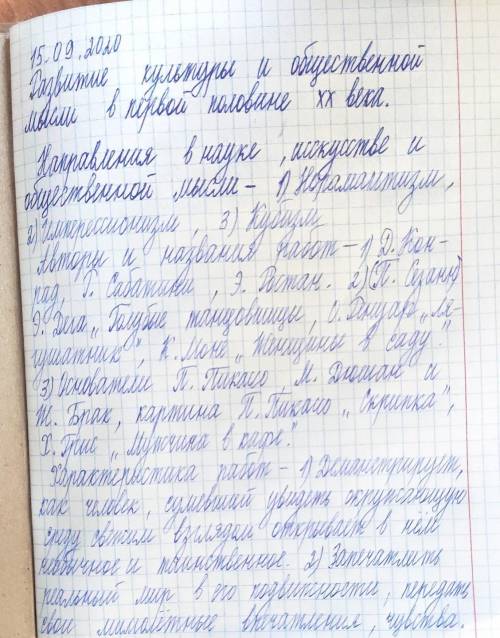 15.09.2020
Развитие культуры и общественной
мысли в первой половине XX века.
Направления в науке, искусстве и
общественной мысли – 1) Неромантизм,
2) Импрессионизм, 3) Кубизм
Авторы и названия работ – 1) Д. Кон-
рад, Р. Сабатини, Э. Ростан. 2) (П. Сезанн)
Э. Дега „Голубые танцовщицы, О. Ренуар „Ля-
гушатник", К. Моне „Женщины в саду".
3) Основатели П. Пикасо, М. Дюшан и
Ж. Брак, картина П. Пикасо „Скрипка",
Х. Грис „Мужчина в кафе".
Характеристика работ – 1) Демонстрирует,
как человек, сумевший увидеть окружающую
среду своим взглядом открывает в нём
необычное и таинственное. 2) Запечатлить
реальный мир в его подвижности, передать
свои мимолётные впечатления, чувства.